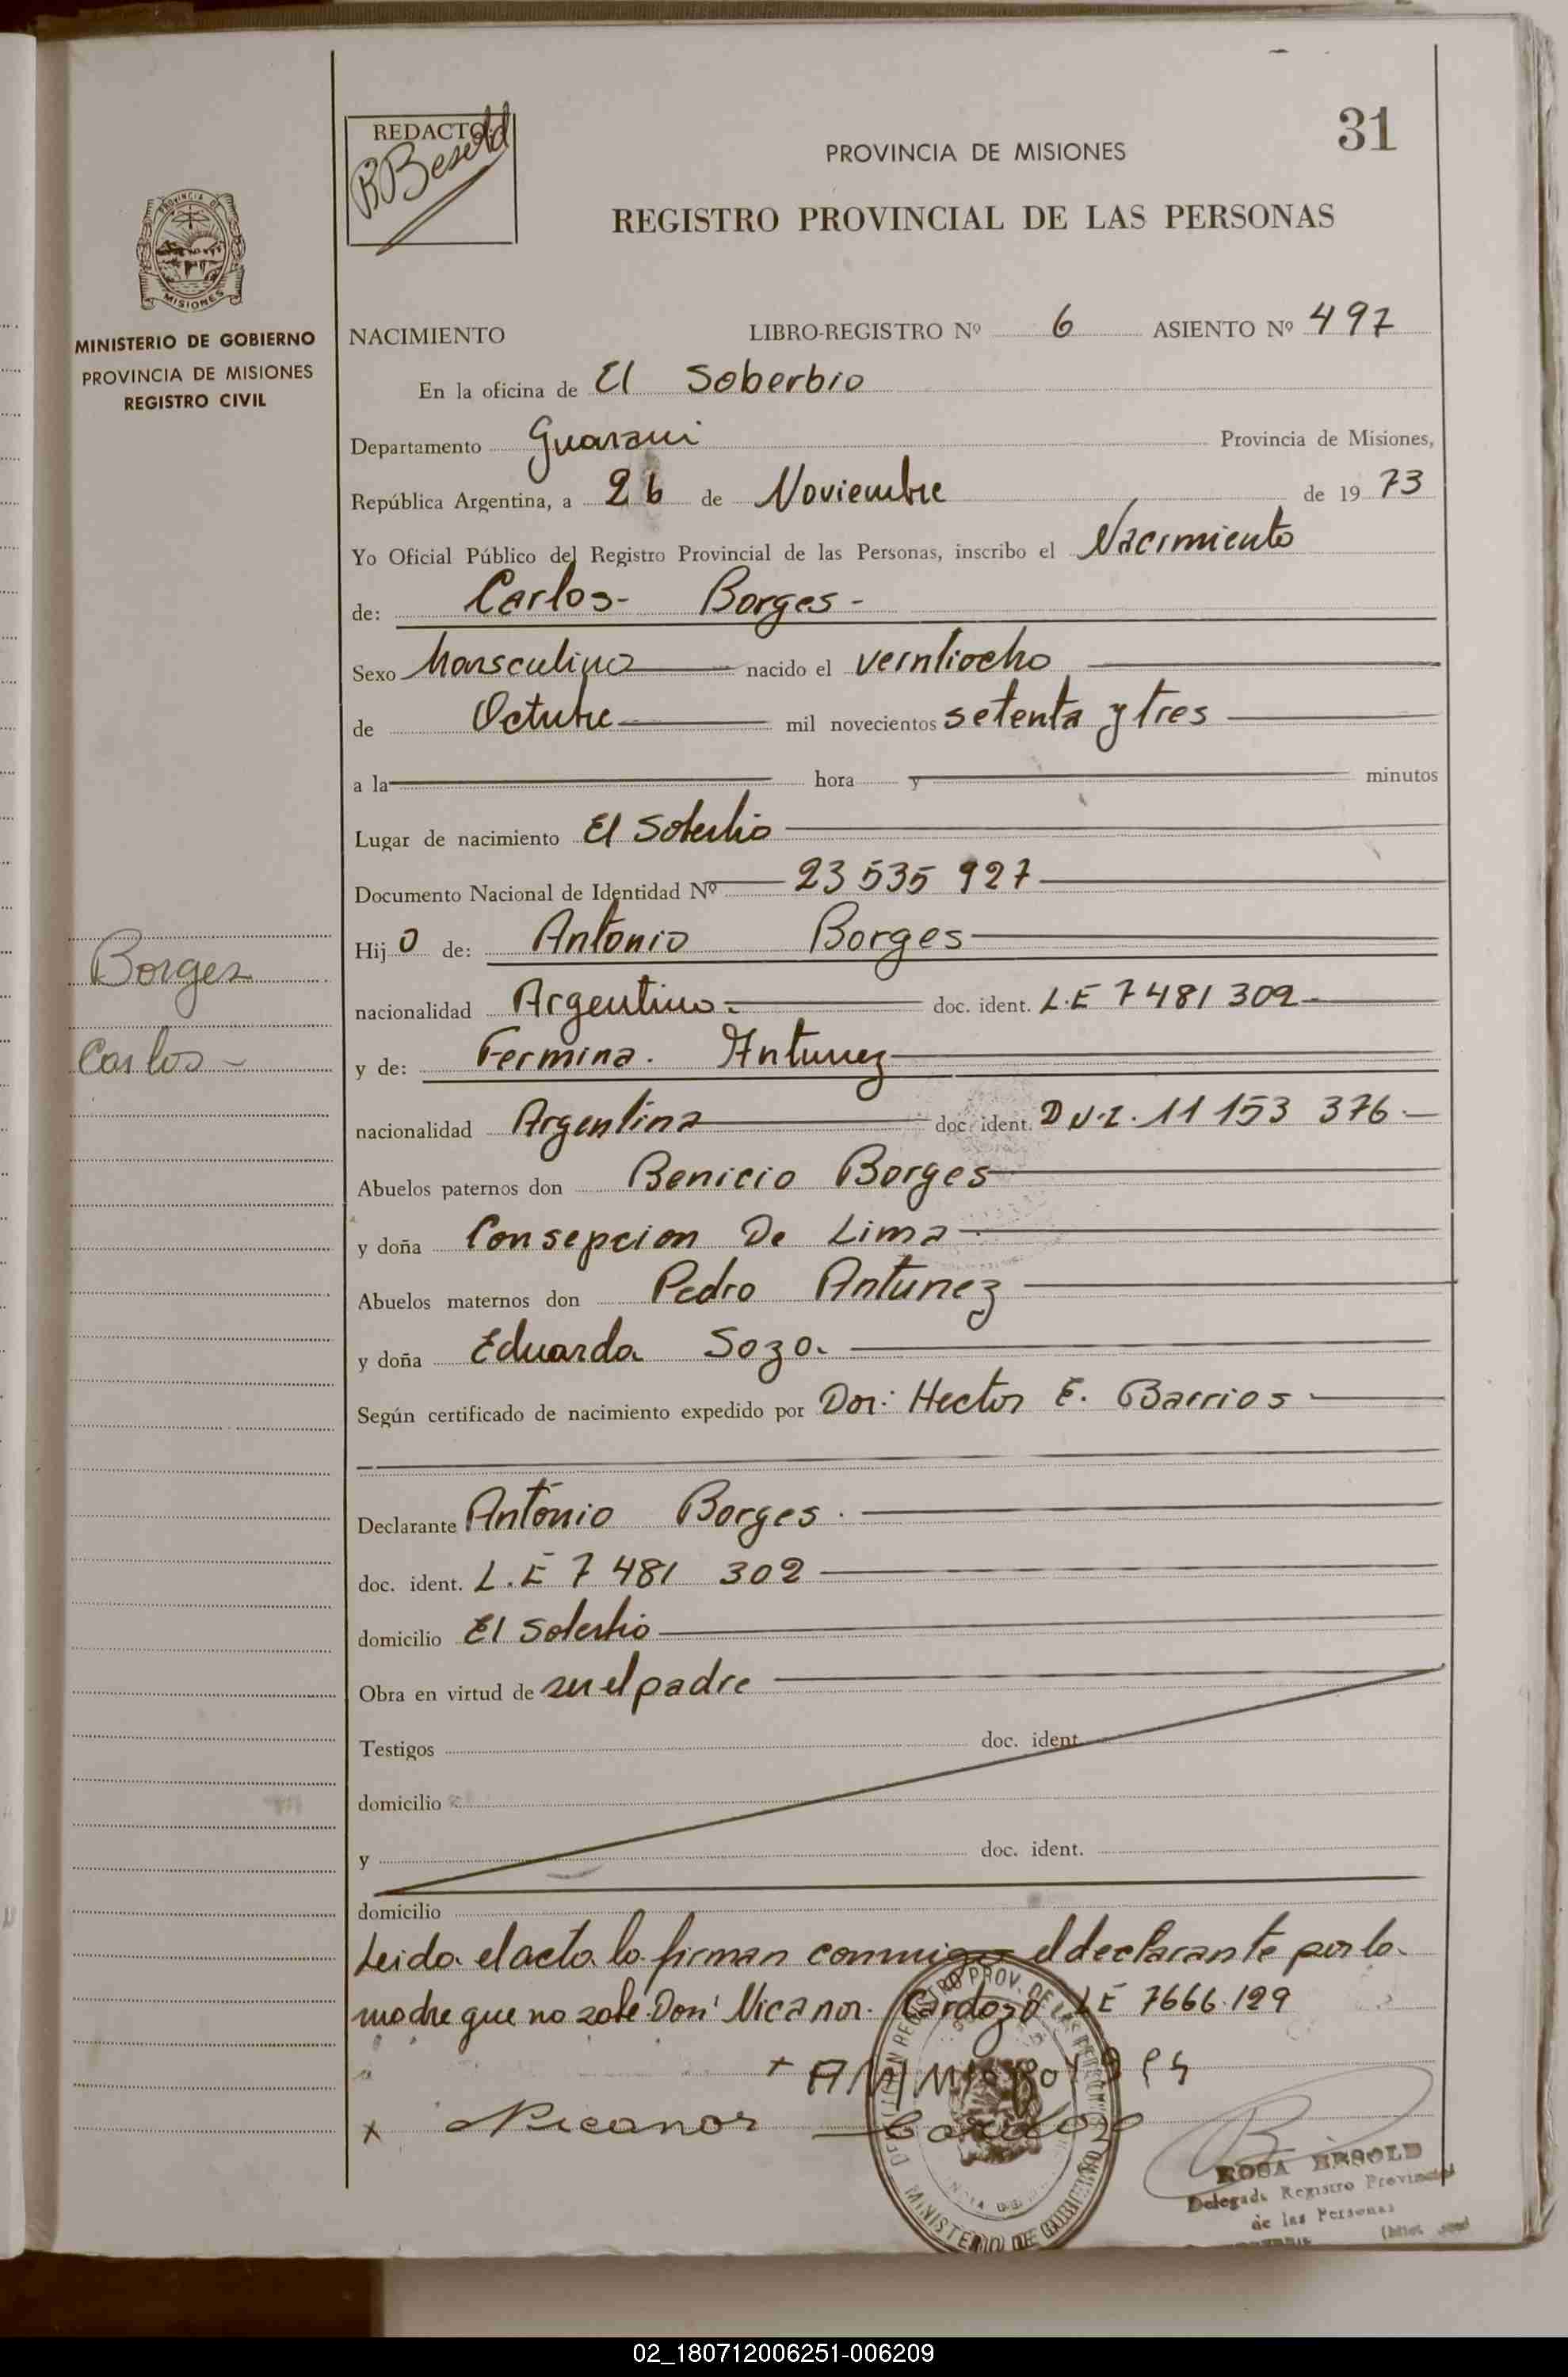 31
REDACTO
B Besold
PROVINCIA DE MISIONES
REGISTRO PROVINCIAL DE LAS PERSONAS
PROVINCIA DE
MISIONES
MINISTERIO DE GOBIERNO
PROVINCIA DE MISIONES
REGISTRO CIVIL
NACIMIENTO LIBRO-REGISTRO Nº 6 ASIENTO Nº 497
En la oficina de El Soberbio
Departamento Guarani Provincia de Misiones,
República Argentina, a 26 de Noviembre de 19 73
Yo Oficial Público del Registro Provincial de las Personas, inscribo el Nacimiento
de: Carlos- Borges-
Sexo Masculino nacido el veintiocho
de Octubre mil novecientos setenta y tres
a la hora y minutos
Lugar de nacimiento El Soberbio
Documento Nacional de Identidad Nº 23 535 927
Hijo de: Antonio Borges
nacionalidad Argentino. doc. ident. L.E 7481 302
y de: Fermina. Antunez
nacionalidad Argentina doc. ident. D N.I. 11 153 376
Abuelos paternos don Benicio Borges
y doña Consepcion De Lima
Abuelos maternos don Pedro Antunez
y doña Eduarda Sozo.
Según certificado de nacimiento expedido por Dor: Hector E. Barrios
Declarante Antonio Borges.
doc. ident. L.E 7 481 302
domicilio El Soberbio
Obra en virtud de ser el padre
Testigos doc. ident.
domicilio
y doc. ident.
domicilio
Leida el acta la firman conmigo el declarante por la
madre que no sabe Don Nicanor. Cardozo LE 7666.129
x Nicanor Cardozo
Borges
Carlos-
MINISTERIO DE GOBIERNO
ROSA BESOLD
Delegada Registro Provincial
de las Personas
02_180712006251-006209